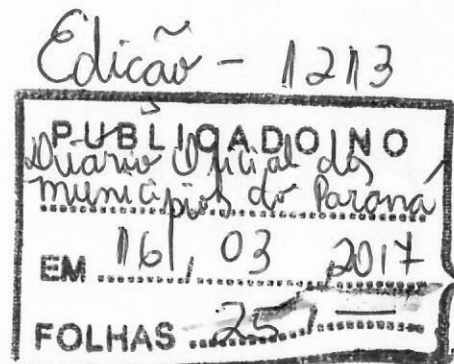 Edição - 1213
PUBLICADO NO
Diário Oficial dos
municípios do Paraná
EM 16, 03 2017
FOLHAS 25 / —